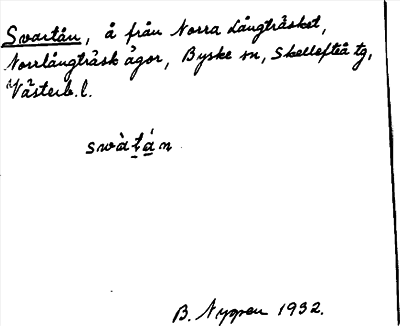 Svartån, å från Norra Långträsket,
Norrlångträsk ägor, Byske sn, Skellefteå tg,
Västerb. l.
swàtán
B. Nygren 1932.